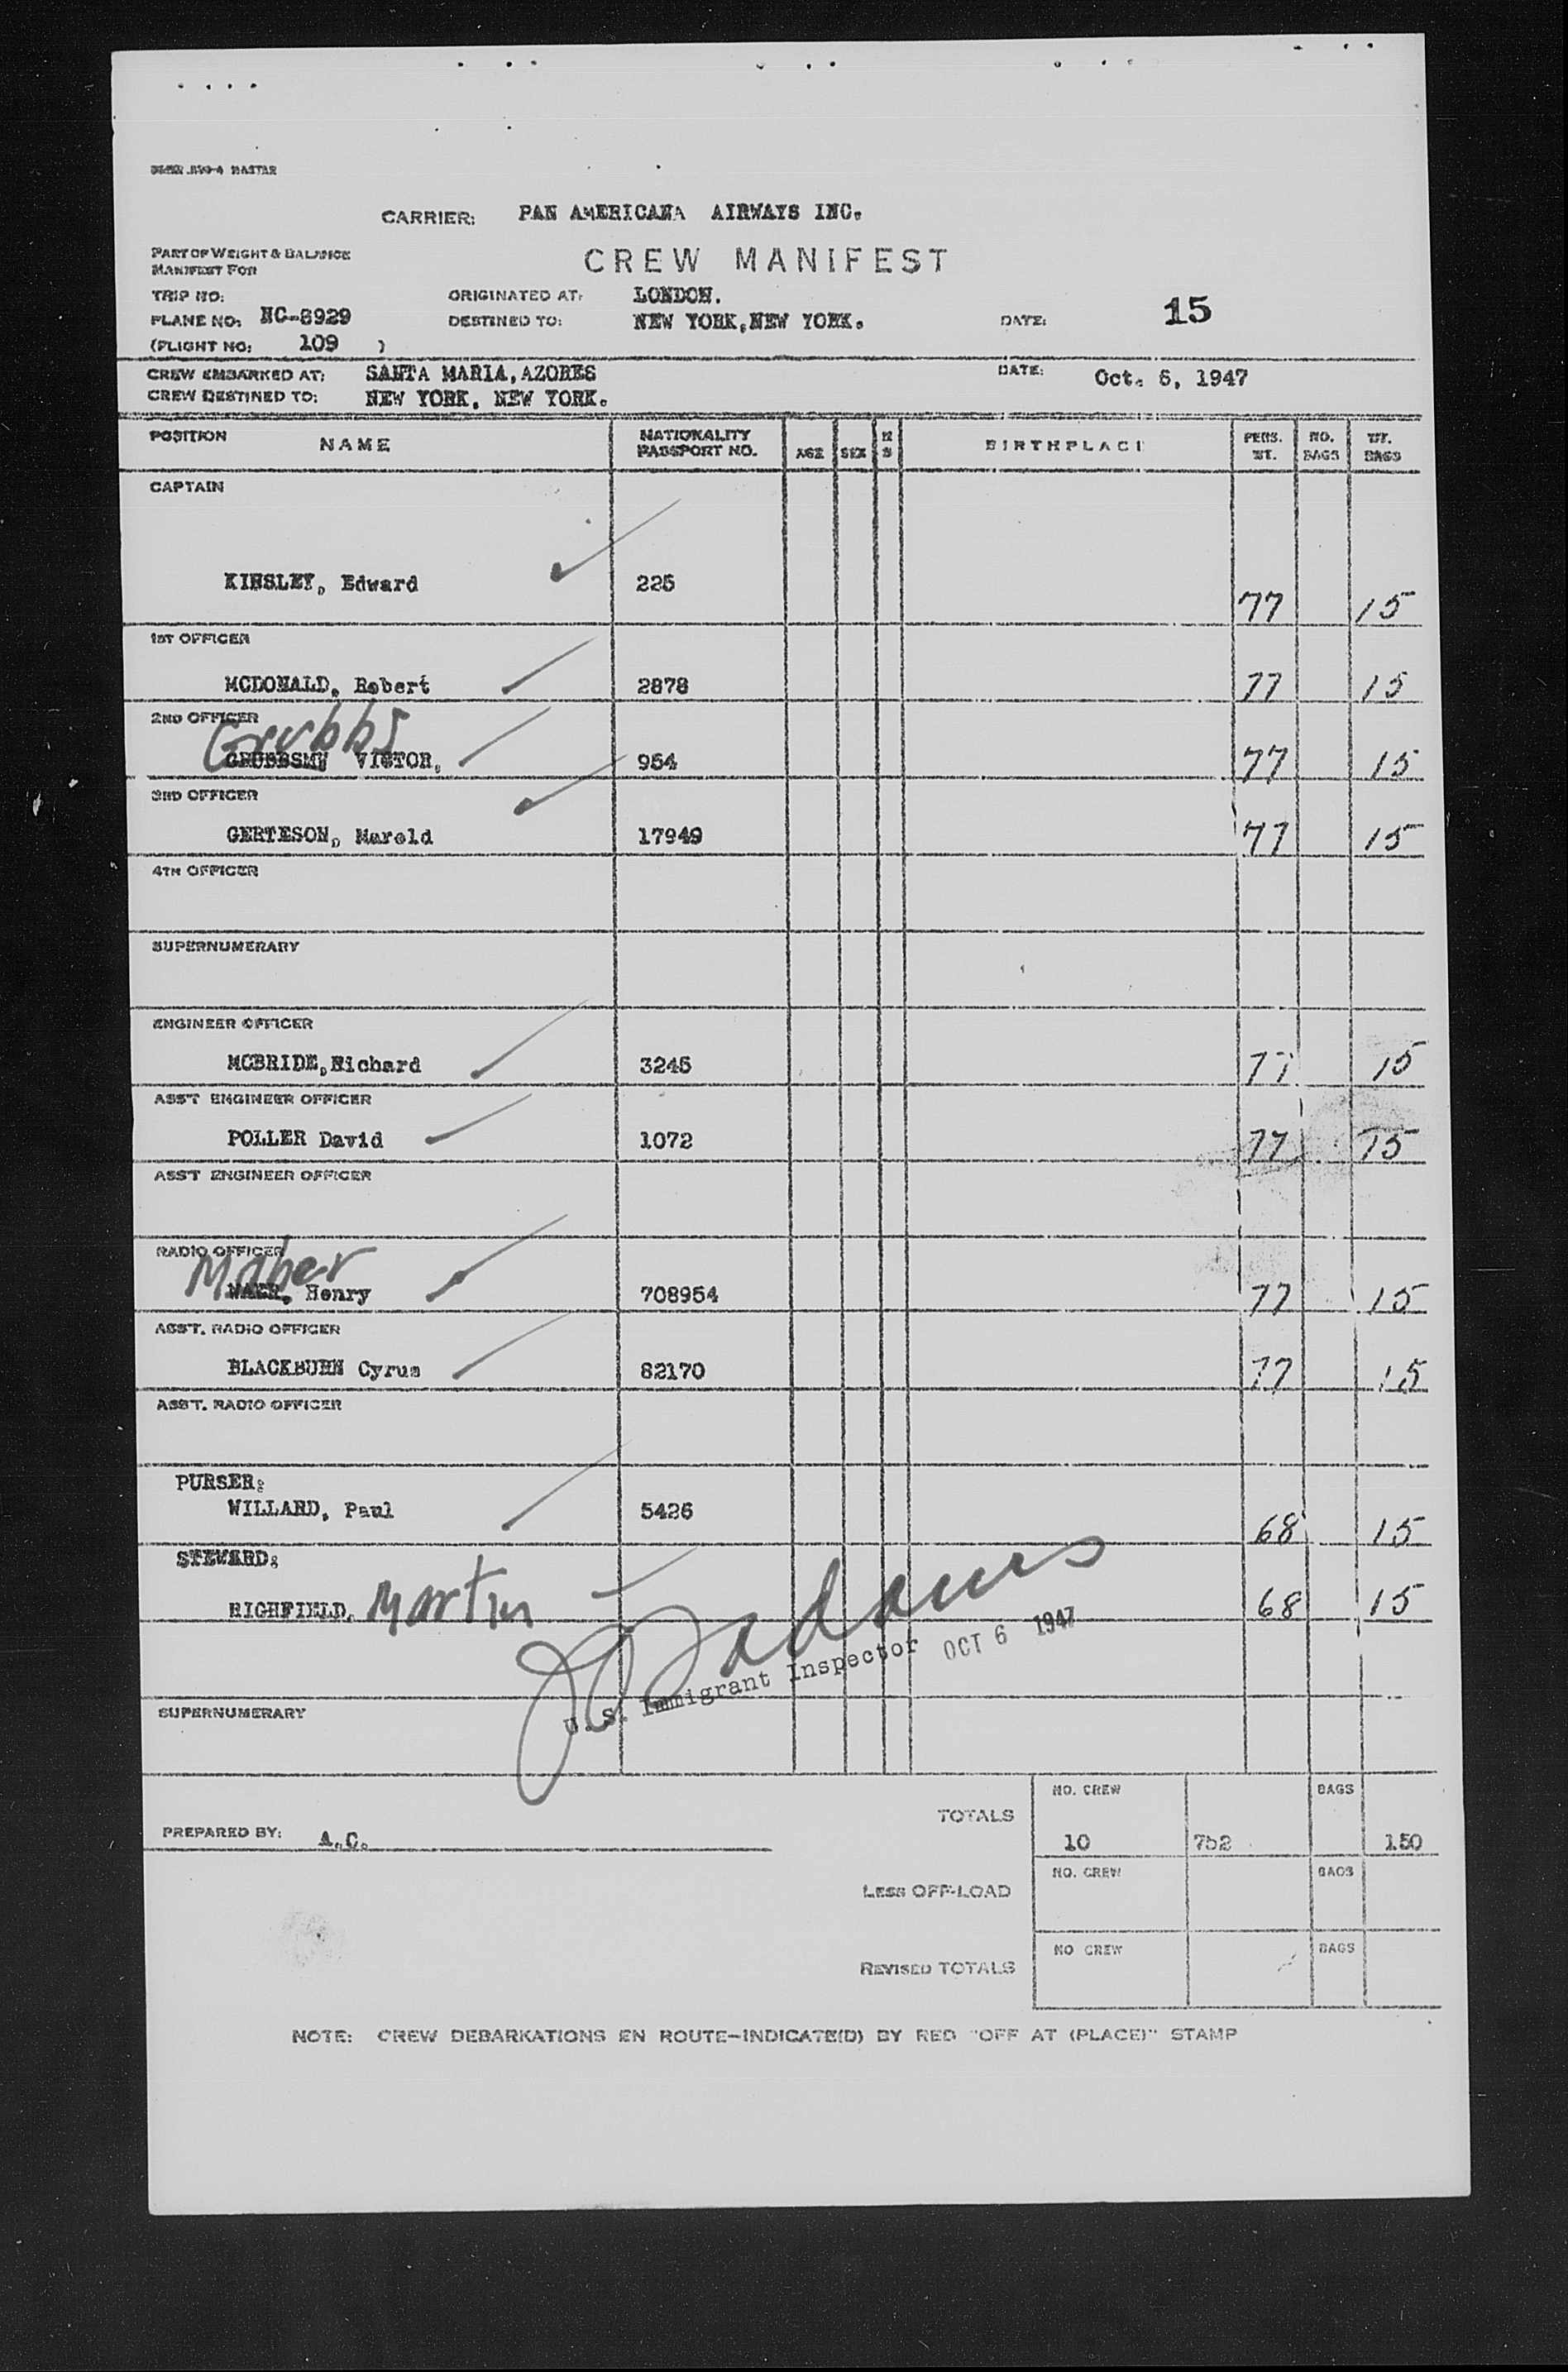 CARRIER: PAN AMERICANA AIRWAYS INC.
PART OF WEIGHT & BALANCE
MANIFEST FOR
CREW MANIFEST
TRIP NO:
ORIGINATED AT: LONDON.
PLANE NO: NC-8929
DESTINED TO: NEW YORK, NEW YORK.
DATE: 15
(FLIGHT NO: 109 )
CREW EMBARKED AT: SANTA MARIA, AZORES
DATE: Oct. 6, 1947
CREW DESTINED TO: NEW YORK, NEW YORK.
POSITION NAME NATIONALITY PASSPORT NO. AGE SEX M S BIRTHPLACE PERS. WT. NO. BAGS WT. BAGS
CAPTAIN
KINSLEY, Edward 225 77 15
1ST OFFICER
MCDONALD, Robert 2878 77 15
2ND OFFICER
Grubbs
VICTOR, 954 77 15
3RD OFFICER
GERTESON, Mareld 17949 77 15
4TH OFFICER
SUPERNUMERARY
ENGINEER OFFICER
MCBRIDE, Richard 3245 77 15
ASS'T ENGINEER OFFICER
POLLER David 1072 77 15
ASS'T ENGINEER OFFICER
RADIO OFFICER
Maher
Henry 708954 77 15
ASS'T. RADIO OFFICER
BLACKBURN Cyrus 82170 77 15
ASS'T. RADIO OFFICER
PURSER:
WILLARD, Paul 5426 68 15
STEWARD:
HIGHFIELD, Martin 68 15
U.S. Immigrant Inspector OCT 6 1947
SUPERNUMERARY
NO. CREW BAGS
TOTALS 10 752 150
PREPARED BY: A.C.
NO. CREW BAGS
LESS OFF-LOAD
NO CREW BAGS
REVISED TOTALS
NOTE: CREW DEBARKATIONS EN ROUTE-INDICATE(D) BY RED "OFF AT (PLACE)" STAMP